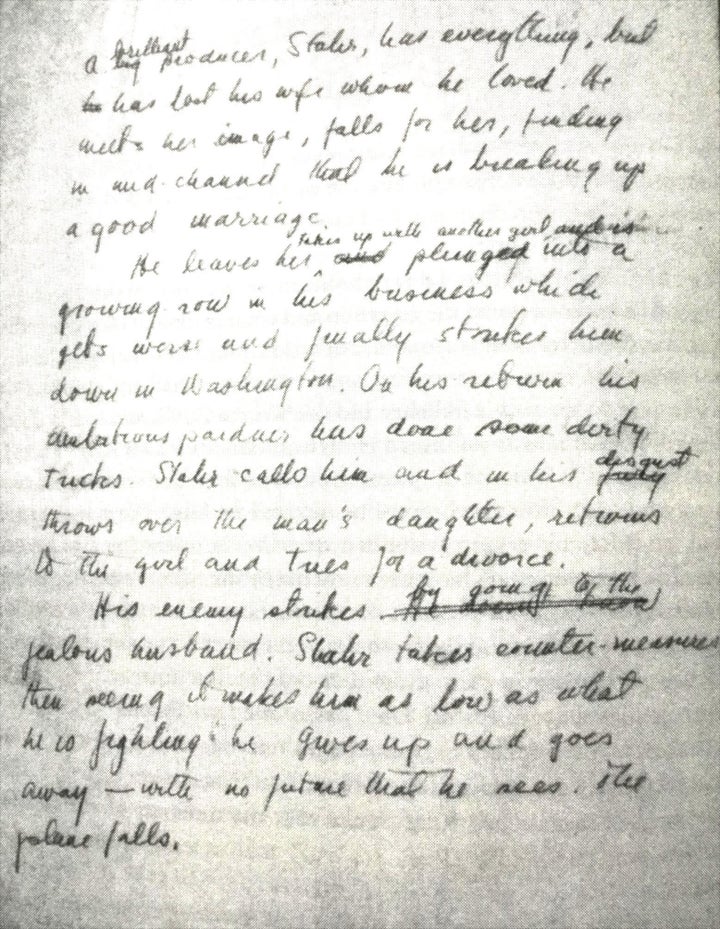 a brilliant producer, Stahr, has everything, but
he has lost his wife whom he loved. He
meets her image, falls for her, finding
in mid-channel that he is breaking up
a good marriage
takes up with another girl and is
He leaves her and plunged into a
growing row in his business which
gets worse and finally strikes him
down in Washington. On his return his
ambitious partner has done some dirty
tricks Stahr calls him and in his disgust
fury
throws over the man's daughter, returns
to the girl and tries for a divorce.
by going to the
His enemy strikes. He doesn't have
jealous husband. Stahr takes counter-measures
then seeing it makes him as low as what
he is fighting he gives up and goes
away — with no future that he sees. The
plane falls.